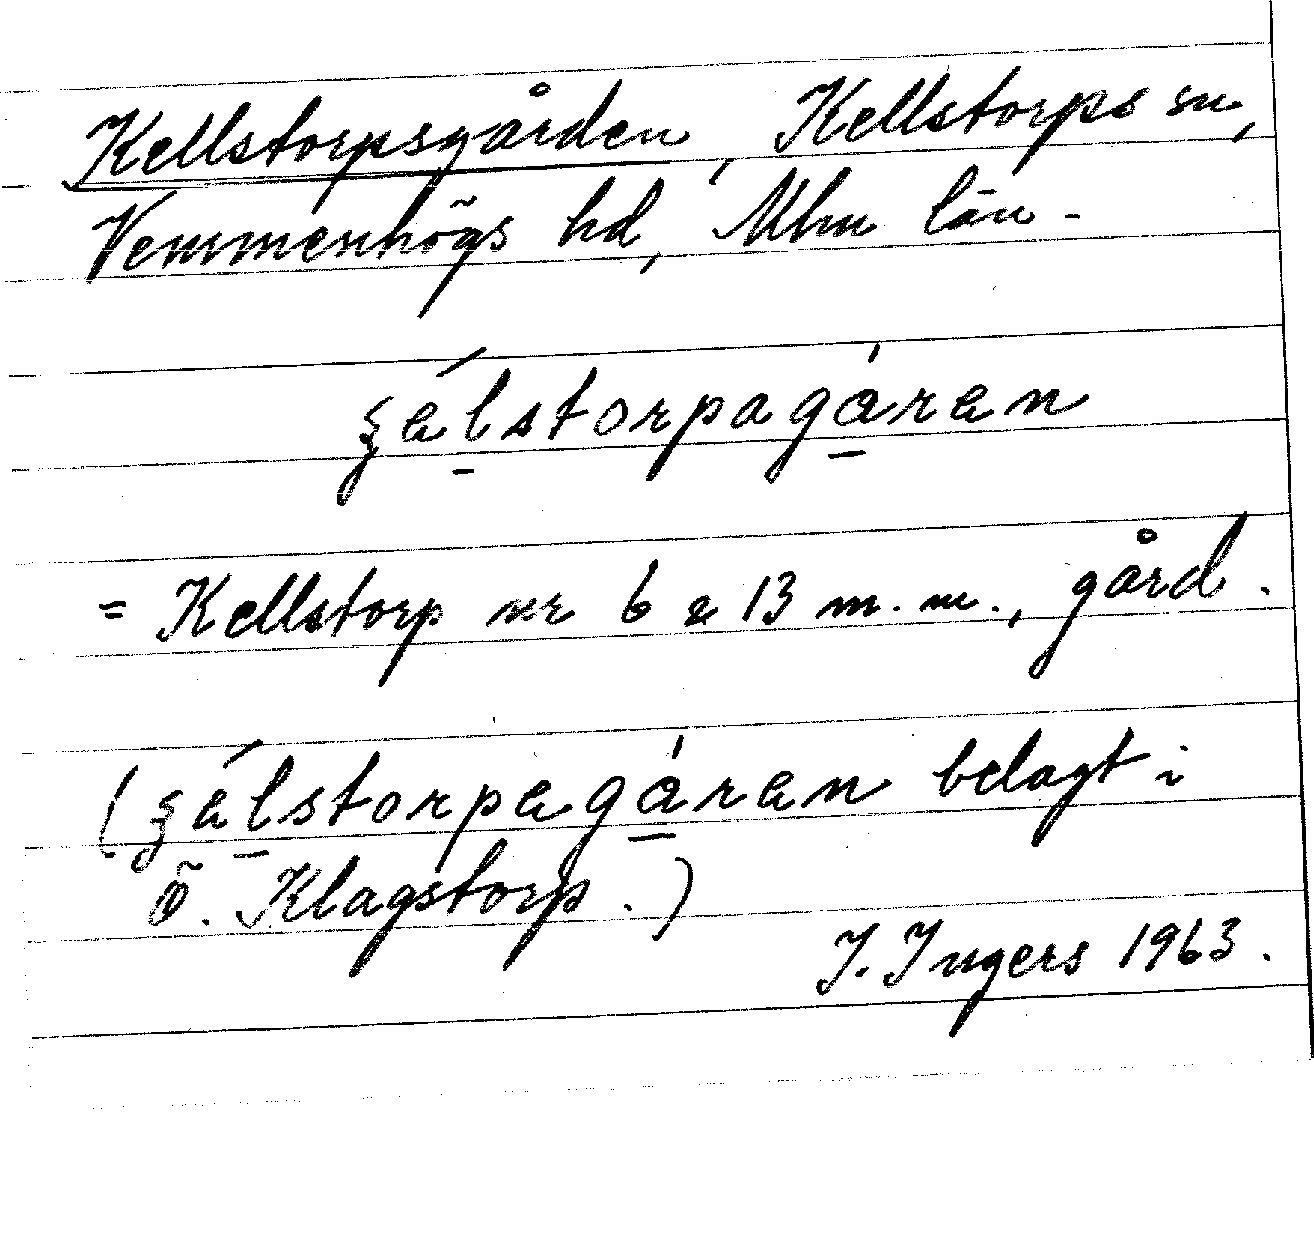 Kellstorpsgården, Kellstorps sn,
Vemmenhögs hd, Mhm län.
ȿælstorpagáran
= Kellstorp nr 6 o 13 m.m., gård.
(ȿælstorpagáran belagt i
Ö. Klagstorp.)
I. Ingers 1963.